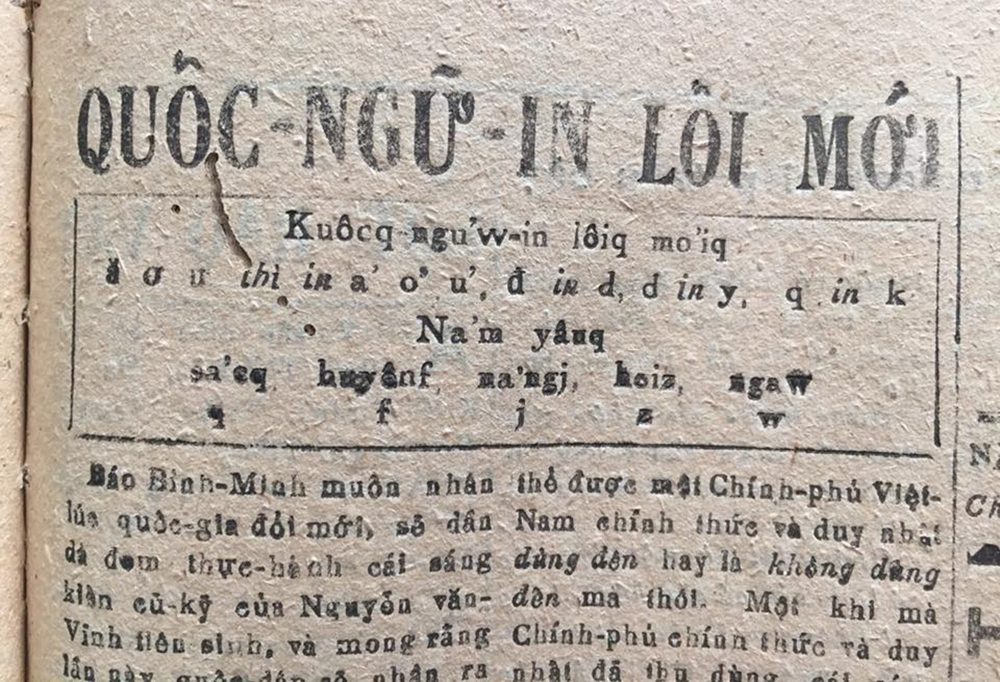 QUỐC-NGỮ-IN LỐI MỚI
Kuôcq-ngu'w-in lôiq mo'iq
ă ơ ư thì in a' o' u', đ in d, d in y, q in k
Na'm yâuq
sa'cq huyênf, na'ngj, hoiz, ngaw
q f j z w
Báo Bình-Minh muôn nhân
lúc quốc-gia đổi mới, sẽ dần
dà đem thực-hành cái sáng
kiến cũ-kỹ của Nguyễn văn-
Vĩnh tiên sinh, và mong rằng
lần này quốc-dân sẽ nhận ra
thế được một Chính-phủ Việt-
Nam chính thức và duy nhất
dùng đến hay là không dùng
đến mà thôi. Một khi mà
Chính-phủ chính thức và duy
nhất đã thu dùng cái
NA
Ch